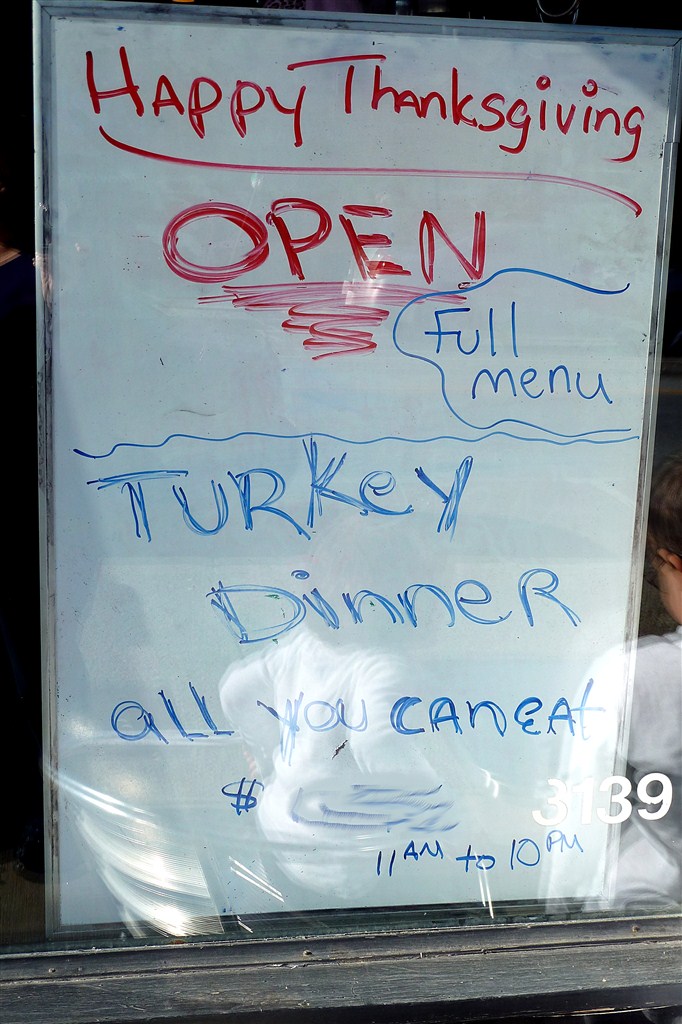 Happy Thanksgiving
OPEN
Full
menu
TURKey
Dinner
all you can eat
$
3139
11AM to 10PM